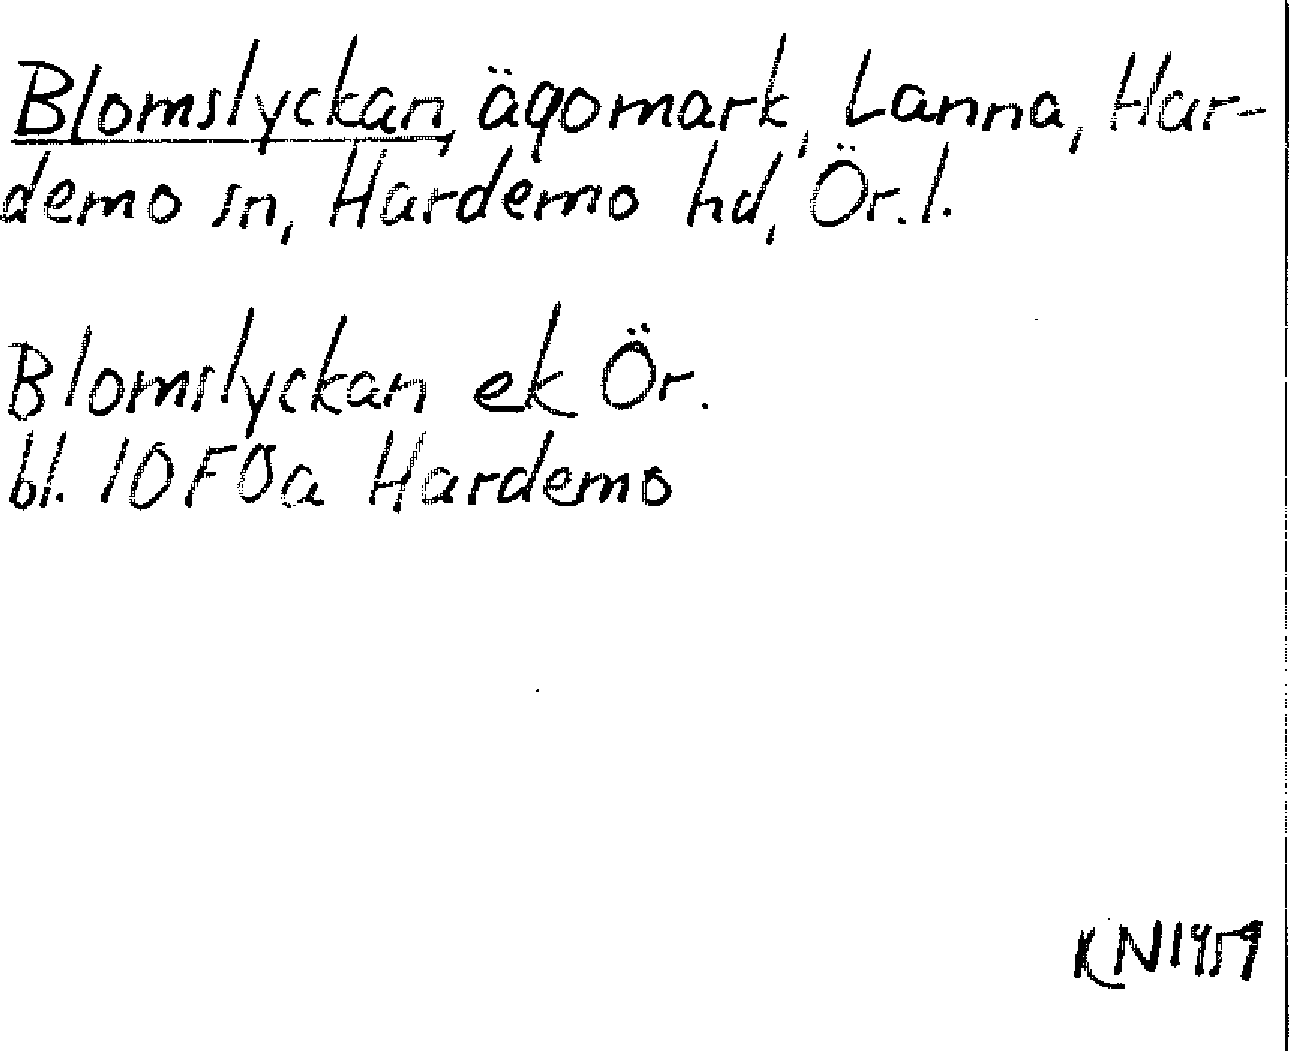 Blomslyckan, ägomark, Lanna, Har-
demo sn, Hardemo hd, Ör. l.
Blomslyckan ek Ör.
bl. 10F0a Hardemo
KN 1959